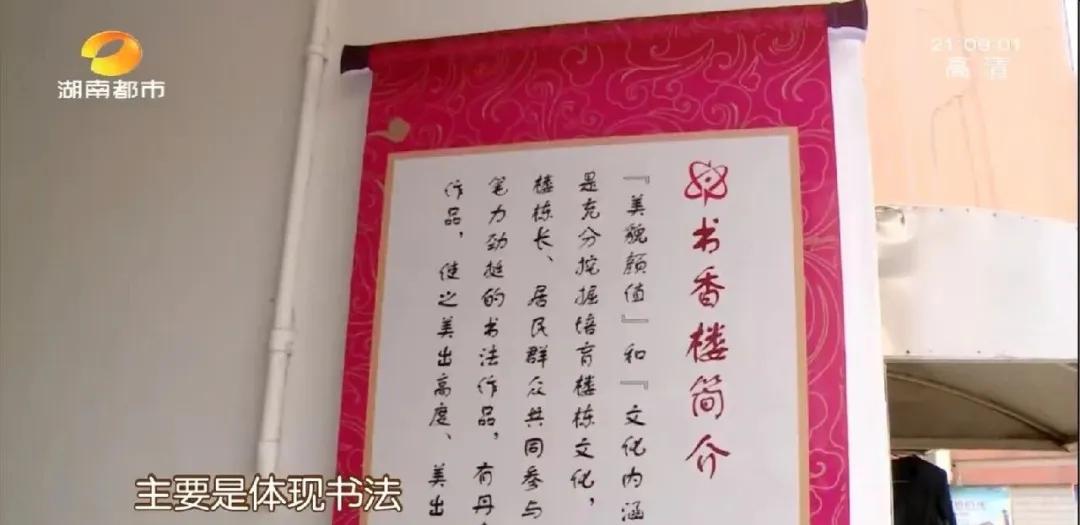 湖南都市
21:09:01
高清
书香楼简介
『美貌颜值』和『文化内涵
是充分挖掘培育楼栋文化,
楼栋长、居民群众共同参与
笔力劲挺的书法作品,有丹
作品,使之美出高度、美出
主要是体现书法